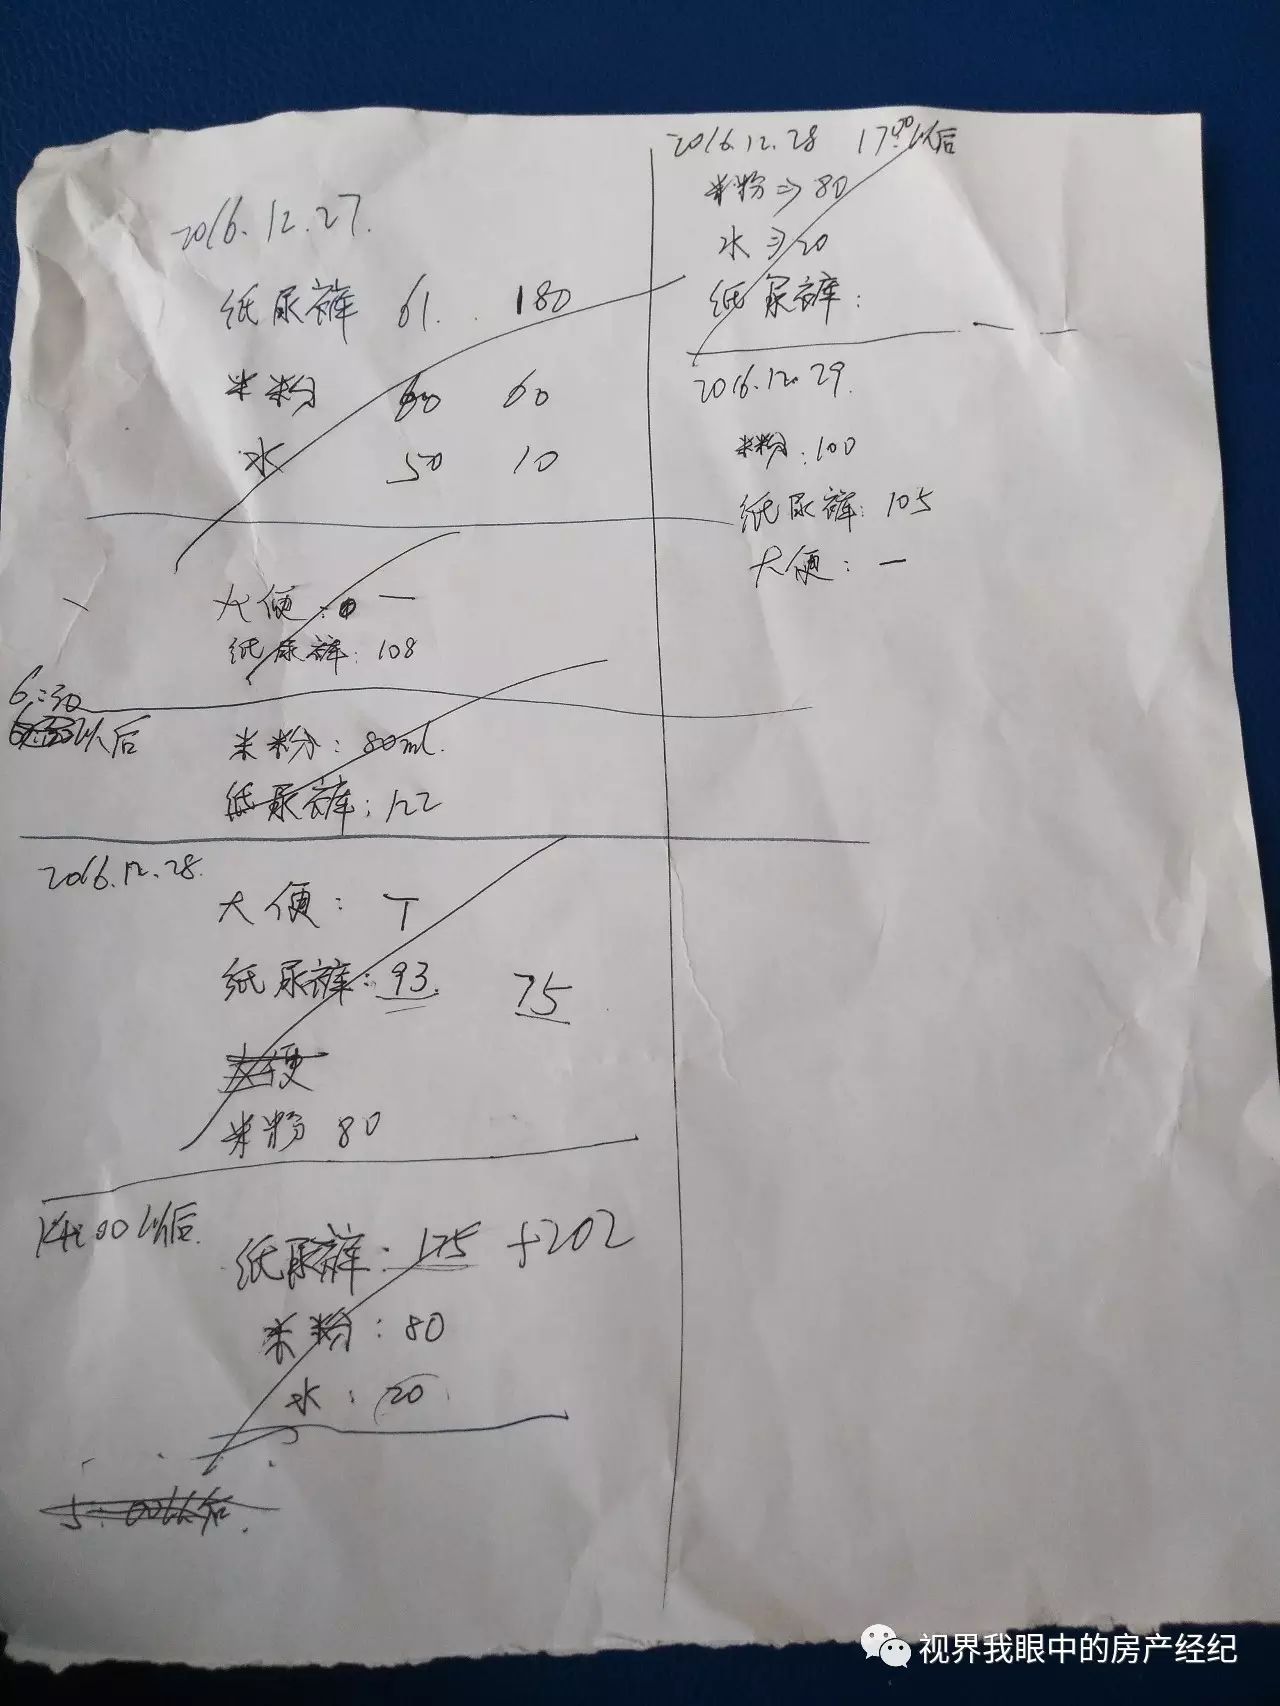 2016.12.27.
纸尿裤 61. 180
米粉 60 60
水 50 10
大便: 一
纸尿裤: 108
6:30
以后
米粉: 80ml.
纸尿裤: 122
2016.12.28.
大便: 丅
纸尿裤: 93. 75
大便
米粉 80
14:00以后.
纸尿裤: 175 +202
米粉: 80
水: 20
5:00以后.
2016.12.28 17:00以后
米粉⇒80
水⇒20
纸尿裤:
2016.12.29.
米粉: 100
纸尿裤: 105
大便: 一
视界我眼中的房产经纪